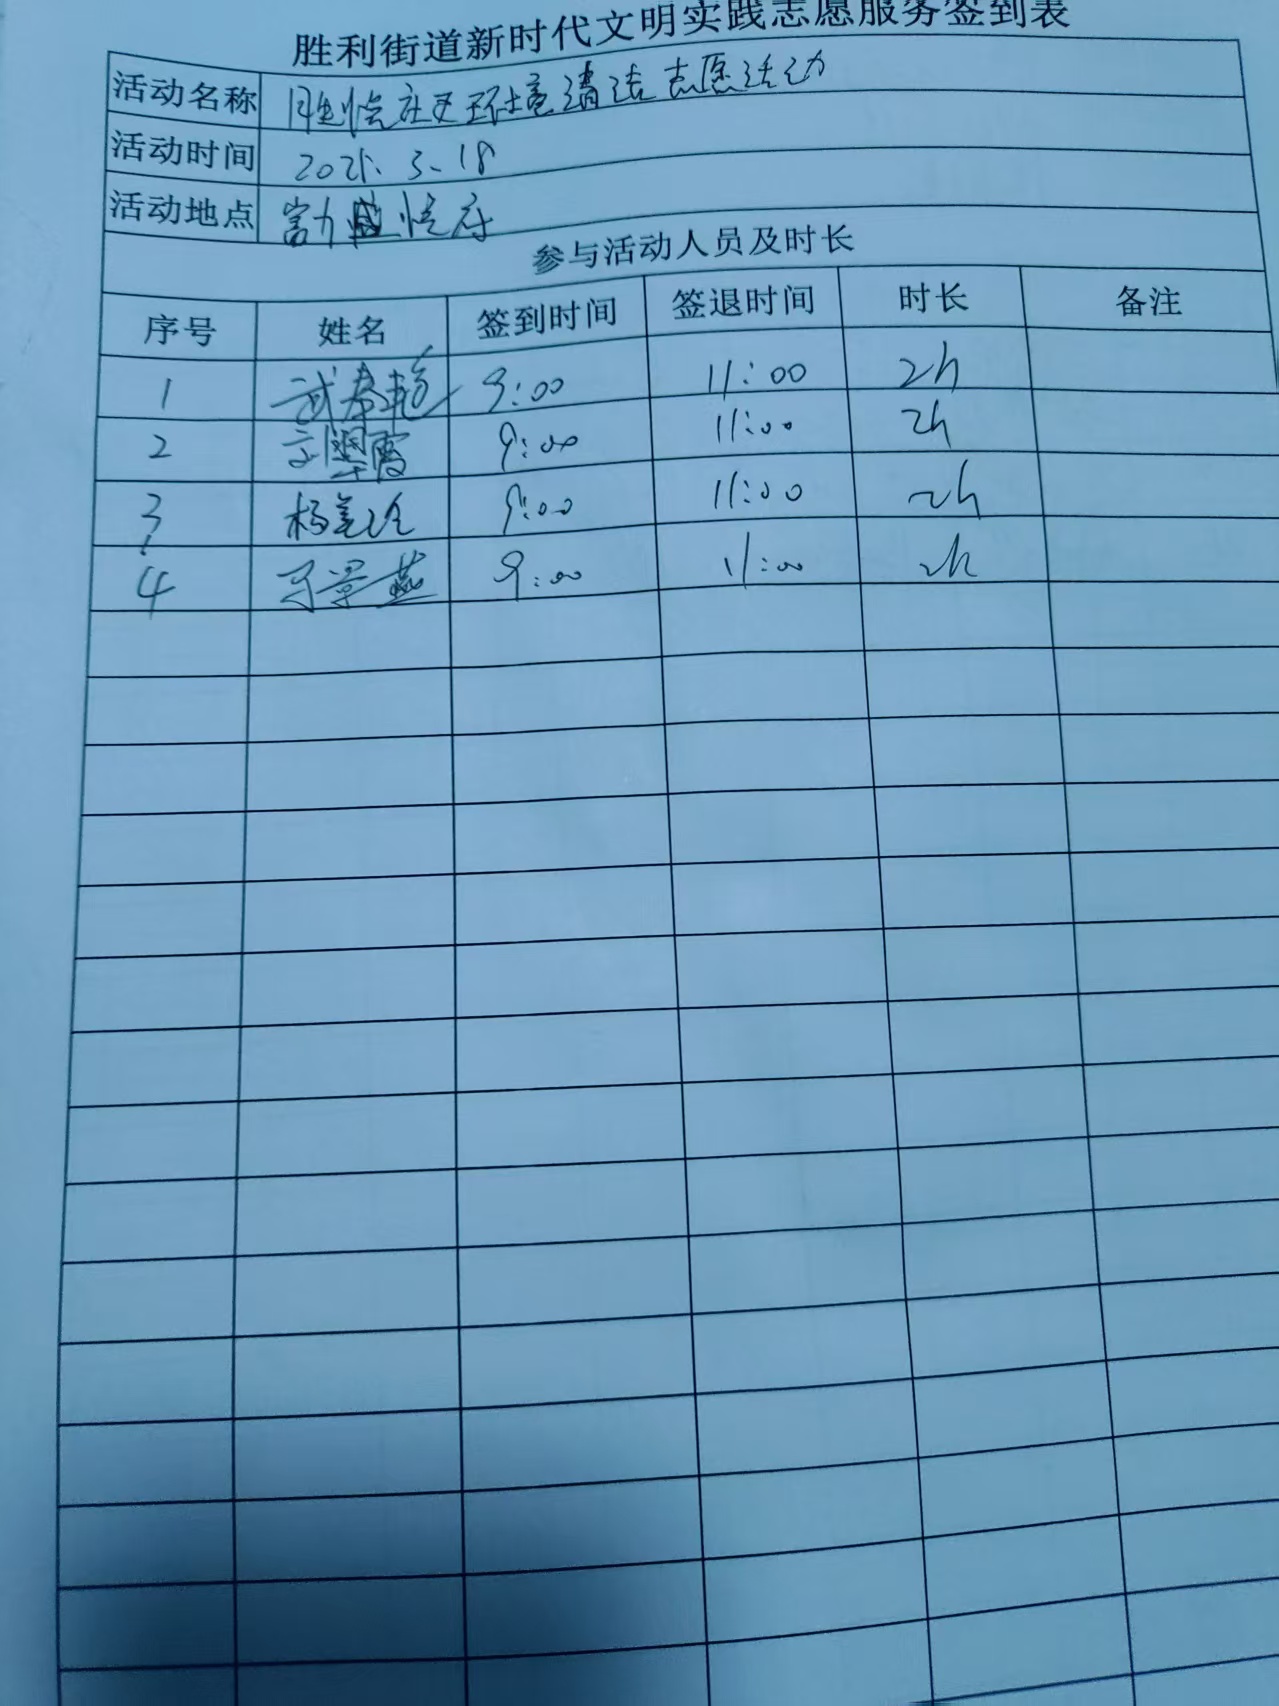 胜利街道新时代文明实践志愿服务签到表
活动名称 胜悦社区环境清洁志愿活动
活动时间 2025.3.18
活动地点 富力盛悦府
参与活动人员及时长
序号 姓名 签到时间 签退时间 时长 备注
1 武春艳 9:00 11:00 2h
2 9:00 11:00 2h
3 杨美玲 9:00 11:00 2h
4 于景燕 9:00 11:00 2h